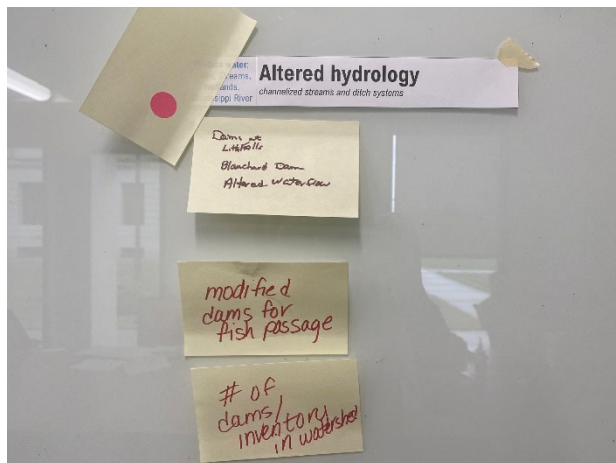 water:
Altered hydrology
channelized streams and ditch systems
Dams at
Little Falls
Blanchard Dam
Altered Water Flow
modified
dams for
fish passage
# of
dams/
inventory
in watershed